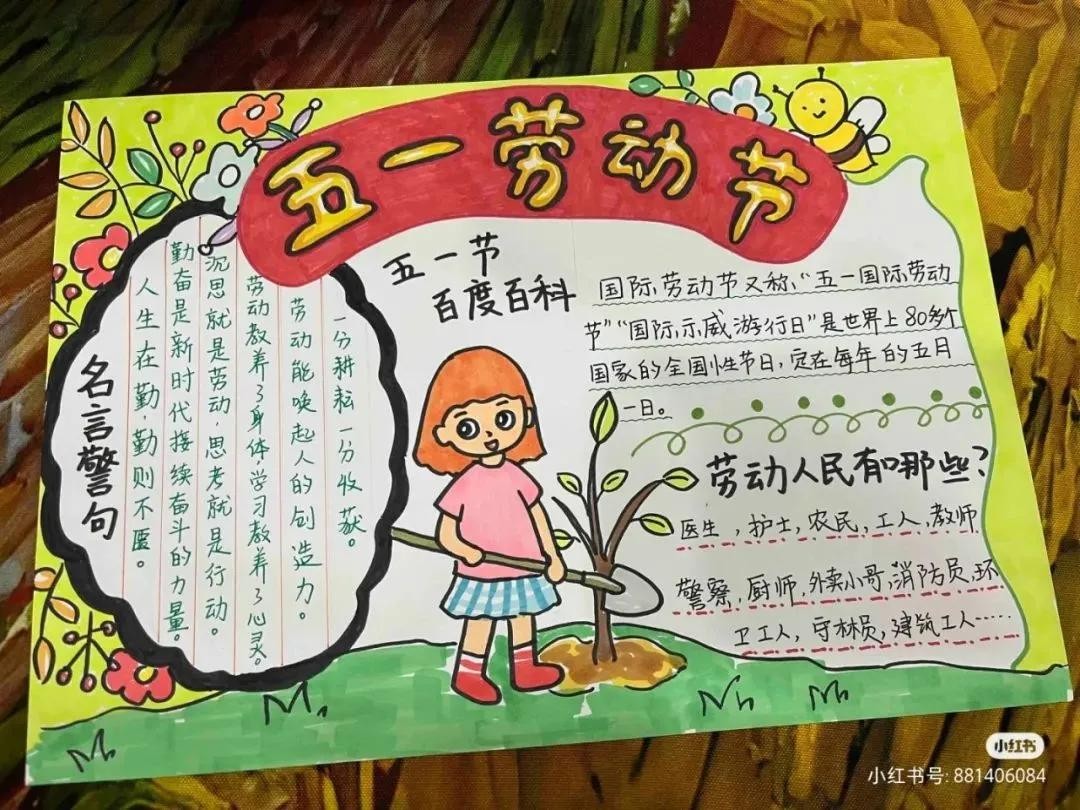 五一劳动节
名言警句
一分耕耘一分收获。
劳动能唤起人的创造力。
劳动教养了身体,学习教养了心灵。
沉思就是劳动,思考就是行动。
勤奋是新时代接续奋斗的力量。
人生在勤,勤则不匮。
五一节
百度百科
国际劳动节又称、“五一国际劳动
节”“国际示威游行日”是世界上80多个
国家的全国性节日,定在每年的五月
一日。
劳动人民有哪些?
医生,护士,农民,工人,教师
警察,厨师,外卖小哥,消防员,环
卫工人,守林员,建筑工人……
小红书
小红书号: 881406084